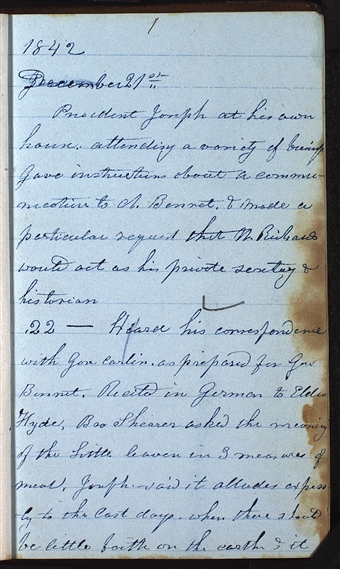 1
1842
December 21st
President Joseph at his own
house. attending a variety of
Gave instructions about a commu-
nication to A. Bennet. & made a
particular request that W. Richards
would act as his private secretary &
historian
.22 — Heard his correspondence
with Gov Carlin. as prepared for Gov
Bennet. Recited in German to Elder
Hyde, Bro Shearer asked the meaning
of the Little leaven in 3 measures of
meal. Joseph said it alludes express
-ly to the last days. when there should
be little faith on the earth & it